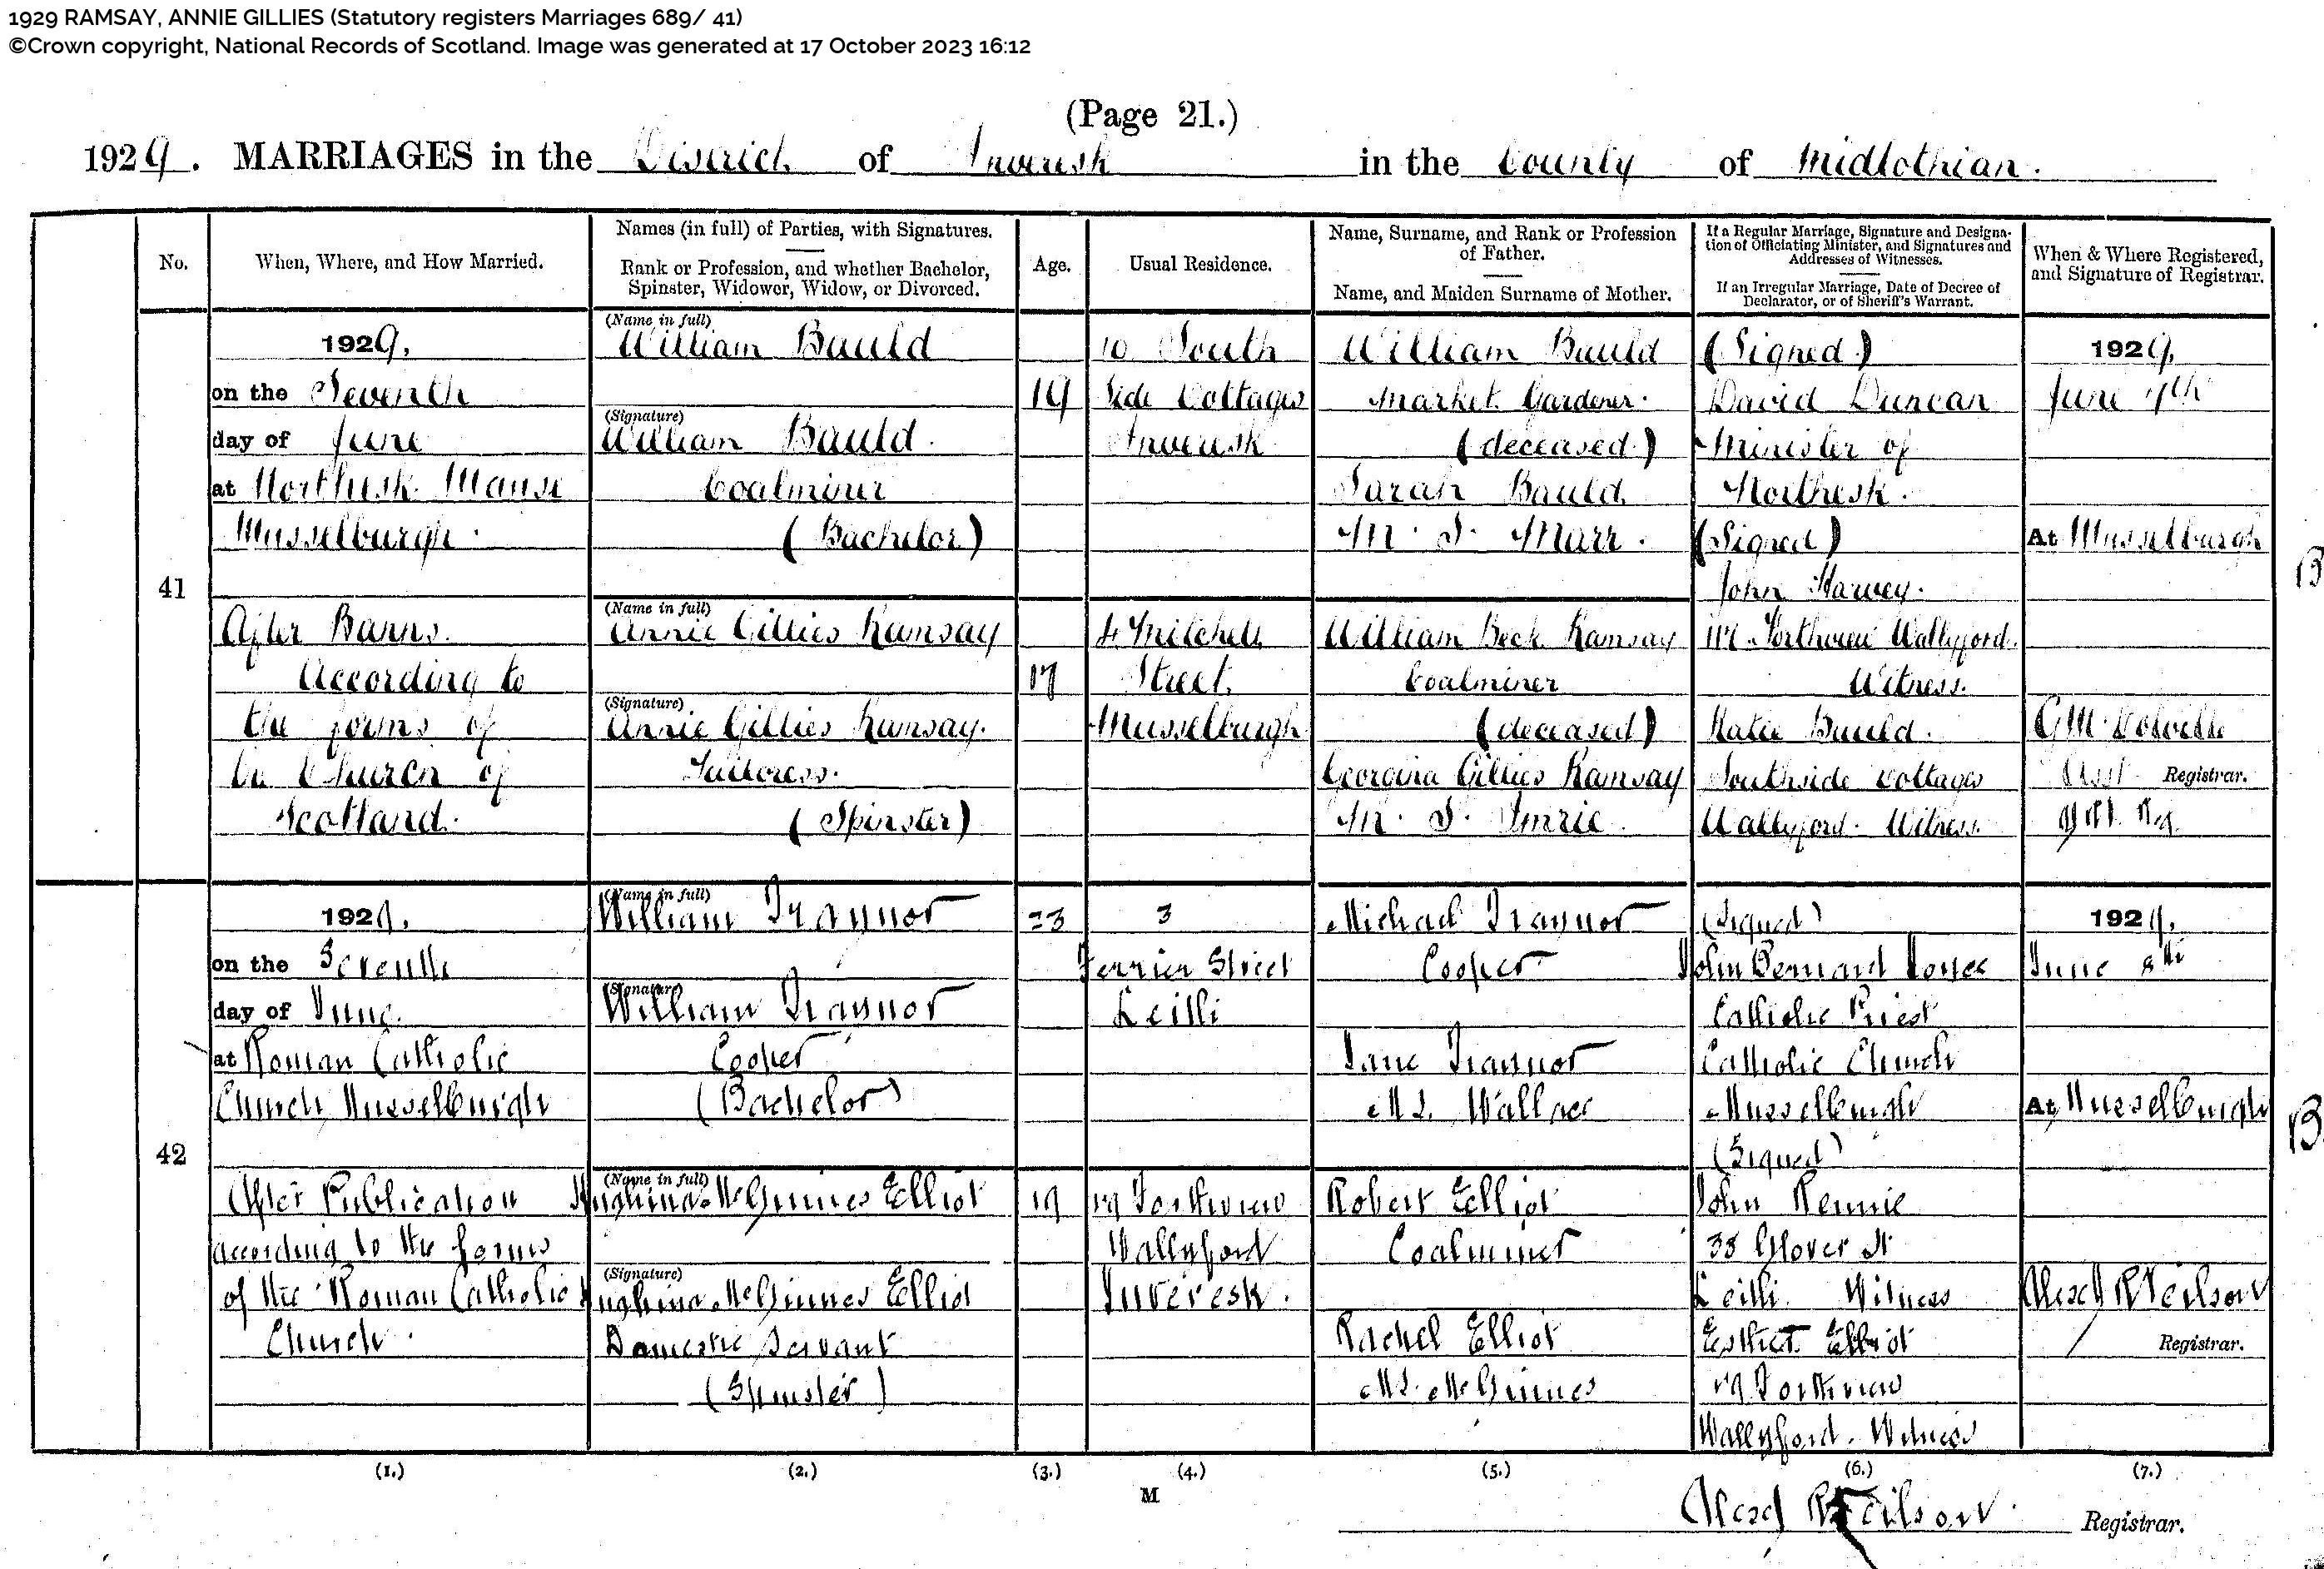 1929 RAMSAY, ANNIE GILLIES (Statutory registers Marriages 689/ 41)
©Crown copyright, National Records of Scotland. Image was generated at 17 October 2023 16:12
(Page 21.)
1929. MARRIAGES in the District of Inveresk in the County of Midlothian.
No.
When, Where, and How Married.
Names (in full) of Parties, with Signatures.
Rank or Profession, and whether Bachelor,
Spinster, Widower, Widow, or Divorced.
Age.
Usual Residence.
Name, Surname, and Rank or Profession
of Father.
Name, and Maiden Surname of Mother.
If a Regular Marriage, Signature and Designa-
tion of Officiating Minister, and Signatures and
Addresses of Witnesses.
If an Irregular Marriage, Date of Decree of
Declarator, or of Sheriff's Warrant.
When & Where Registered,
and Signature of Registrar.
41
1929,
on the Seventh
day of June
at Northesk Manse
Musselburgh.
After Banns.
According to
the forms of
the Church of
Scotland.
(Name in full)
William Bauld
(Signature)
William Bauld.
Coalminer
(Bachelor)
(Name in full)
Annie Gillies Ramsay
(Signature)
Annie Gillies Ramsay.
Tailoress.
(Spinster)
19
17
10 South
Side Cottages
Inveresk
4 Mitchell
Street,
Musselburgh
William Bauld
Market Gardener.
(deceased.)
Sarah Bauld
M. S. Marr.
William Beck Ramsay
Coalminer
(deceased)
Georgina Gillies Ramsay
M. S. Imrie.
(Signed)
David Duncan
Minister of
Northesk.
(Signed)
John Harvey.
Forthview Wallyford.
Witness.
Katie Bauld.
Southside Cottages
Wallyford. Witness.
1929,
June 7th
At Musselburgh
Asst. Registrar.
42
1929,
on the Seventh
day of June
at Roman Catholic
Church Musselburgh
After Publication
according to the forms
of the Roman Catholic
Church.
(Name in full)
William Traynor
(Signature)
William Traynor
Cooper
(Bachelor)
(Name in full)
Hughina McGinnes Elliot
(Signature)
Hughina McGinnes Elliot
Domestic Servant
(Spinster)
23
19
3
Ferrier Street
Leith
19 Forthview
Wallyford
Inveresk.
Michael Traynor
Cooper
Jane Traynor
M.S. Wallace
Robert Elliot
Coalminer
Rachel Elliot
M.S. McGinnes
(Signed)
John Bernard
Catholic Priest
Catholic Church
Musselburgh
(Signed)
John Rennie
38 Glover St
Leith. Witness
Esther Elliot
19 Forthview
Wallyford. Witness
1929,
June 8th
At Musselburgh
Alexd R Neilson
Registrar.
(1.) (2.) (3.) (4.) (5.) (6.) (7.)
M
Alexd R Neilson.
Registrar.